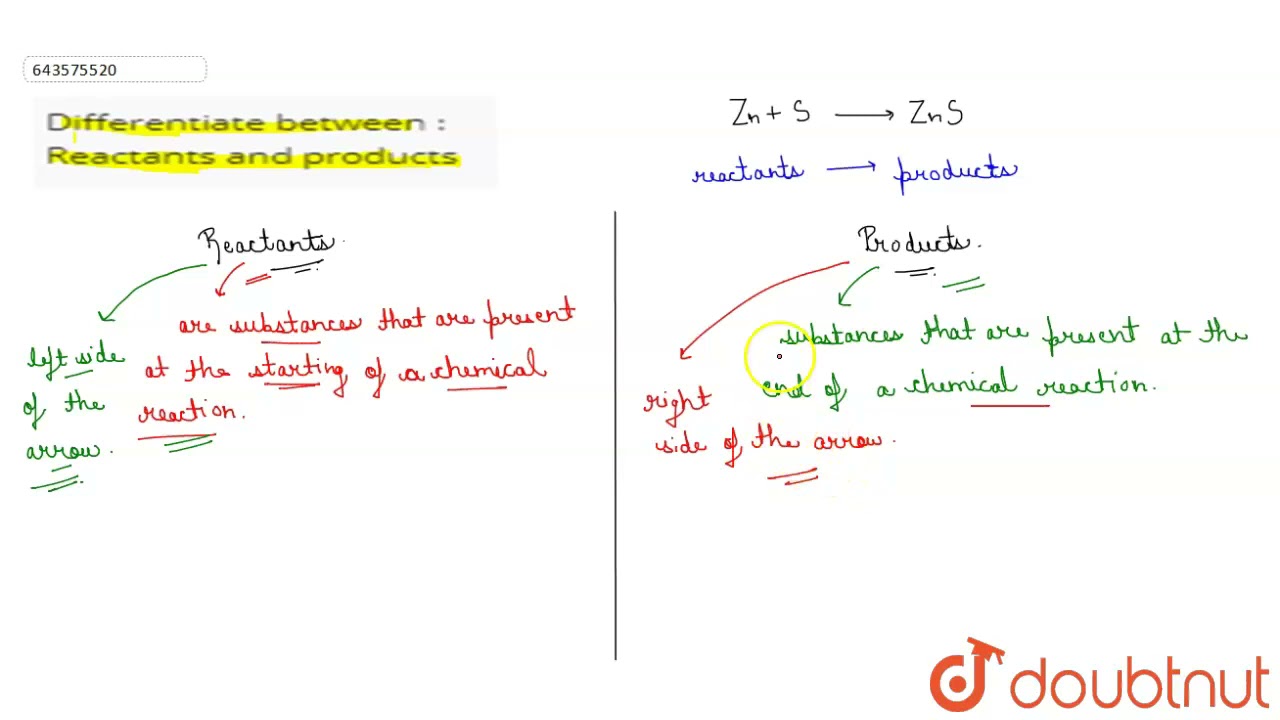 643575520
Differentiate between :
Reactants and products
Zn + S ⟶ ZnS
reactants ⟶ products
Reactants.
are substances that are present
at the starting of a chemical
reaction.
left side
of the
arrow.
Products.
substances that are present at the
end of a chemical reaction.
right
side of the arrow.
doubtnut